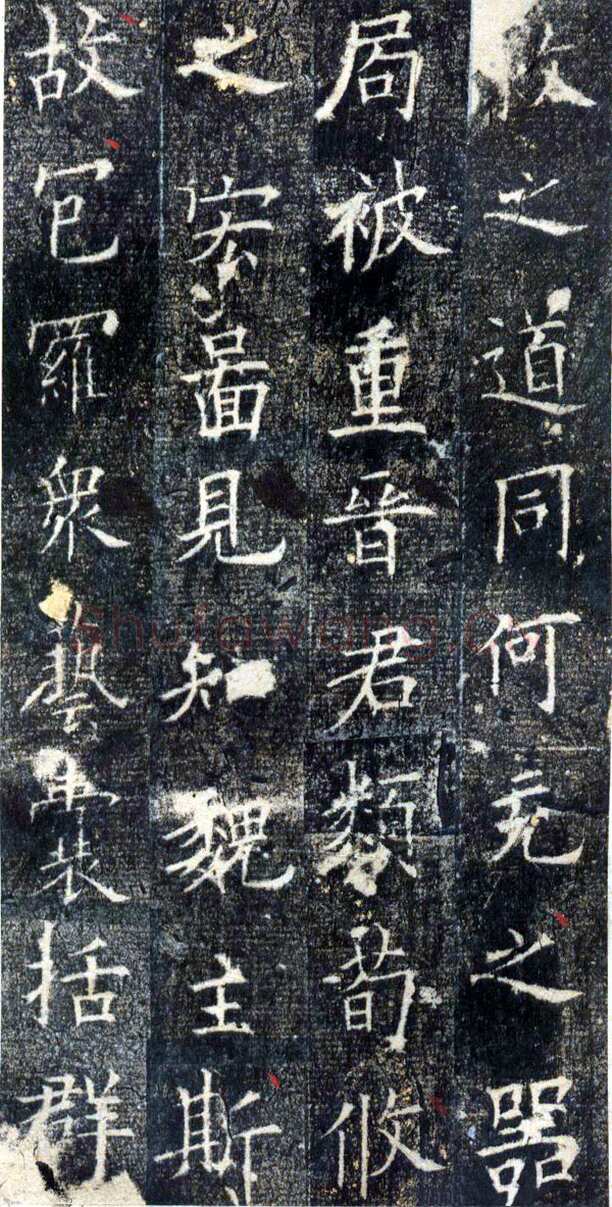 之道同何充之器
局被重晉君類荀攸
之宏圖見知魏主斯
故包羅衆藝囊括群
shufawang.c